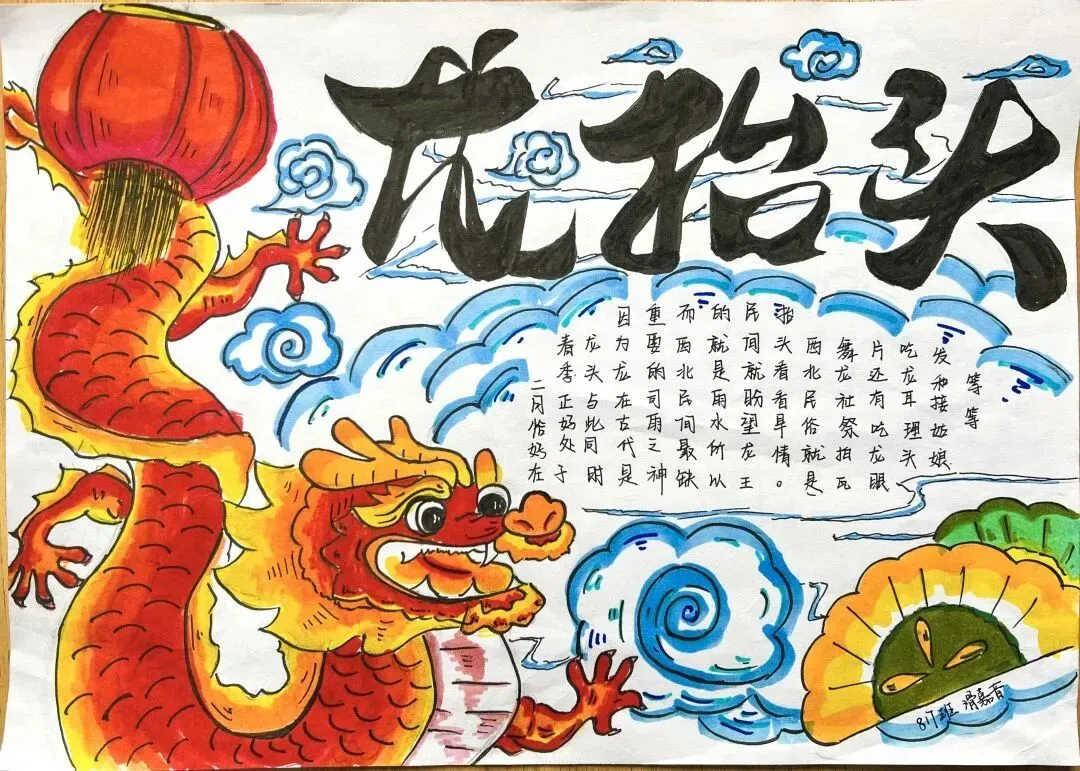 龙抬头
二月恰好在
春季正好处于
龙头与此同时
因为龙在古代是
重要的司雨之神
而西北民间最缺
的就是雨水所以
民间就盼望龙王
抬头看看旱情。
西北民俗就是
舞龙社祭拍瓦
片还有吃龙眼
吃龙耳理头
发和接姑娘
等等
817班 滑嘉育